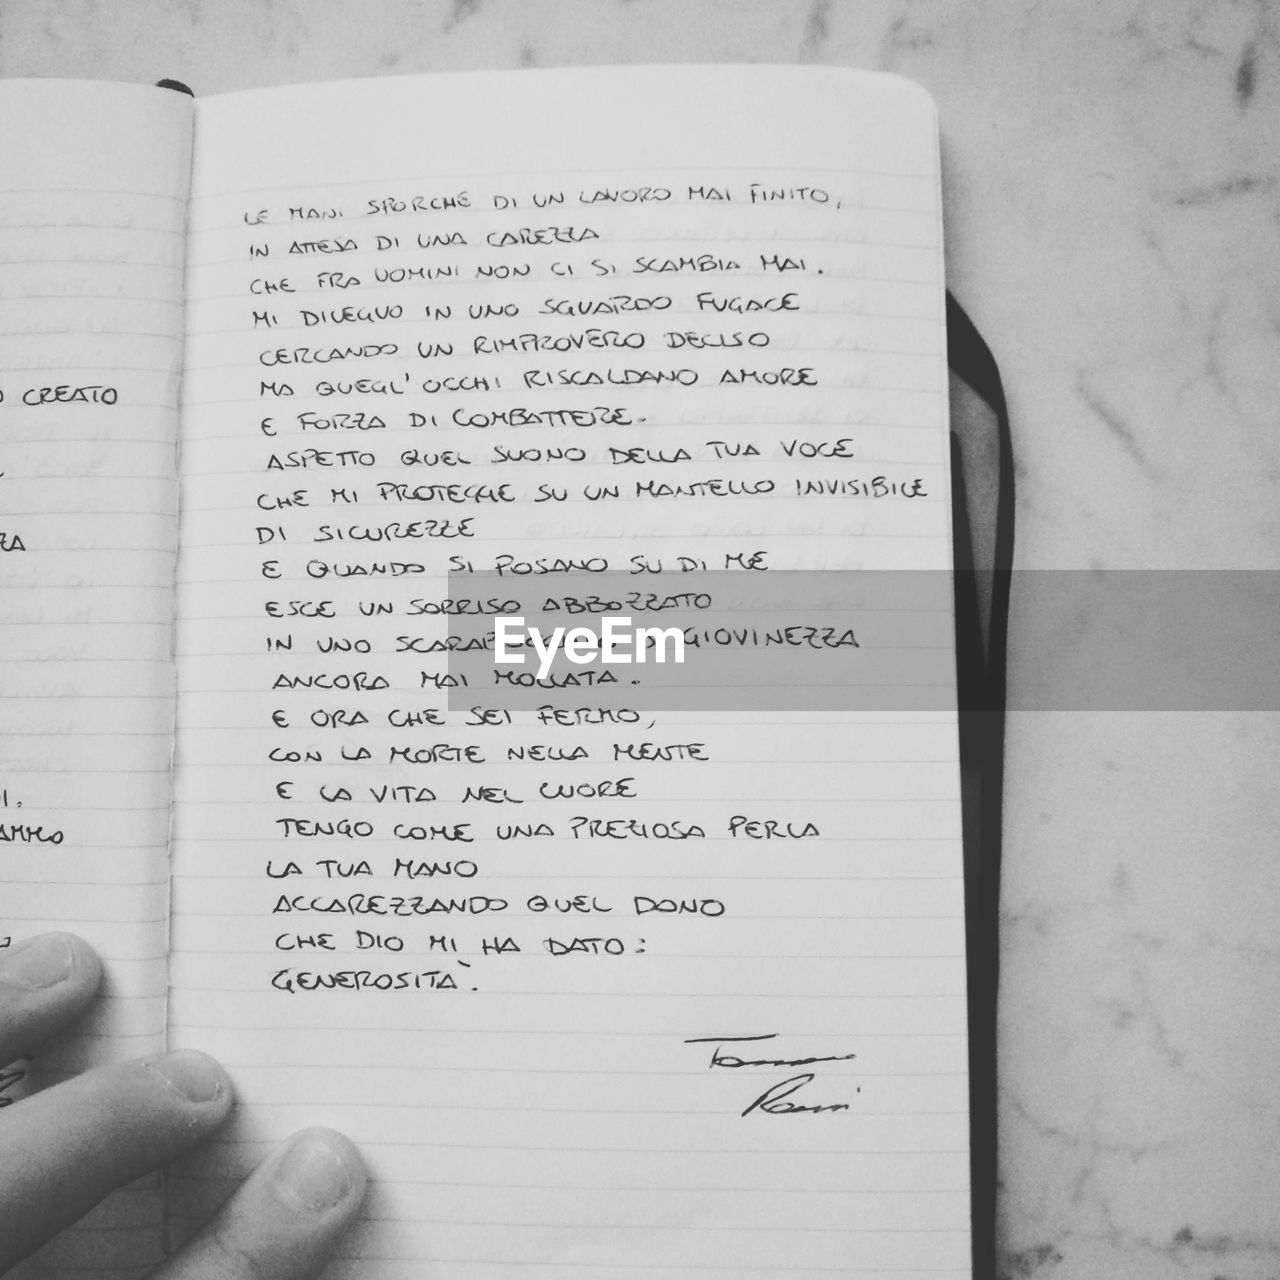 LE MANI SPORCHE DI UN LAVORO MAI FINITO,
IN ATTESA DI UNA CAREZZA
CHE FRA UOMINI NON CI SI SCAMBIA MAI.
MI DILEGUO IN UNO SGUARDO FUGACE
CERCANDO UN RIMPROVERO DECISO
MA QUEGL' OCCHI RISCALDANO AMORE
E FORZA DI COMBATTERE.
ASPETTO QUEL SUONO DELLA TUA VOCE
CHE MI PROTEGGE SU UN MANTELLO INVISIBILE
DI SICUREZZE
E QUANDO SI POSANO SU DI ME
ESCE UN SORRISO ABBOZZATO
IN UNO SCARABOCCHIO DI GIOVINEZZA
ANCORA MAI MOLLATA.
E ORA CHE SEI FERMO,
CON LA MORTE NELLA MENTE
E LA VITA NEL CUORE
TENGO COME UNA PREZIOSA PERLA
LA TUA MANO
ACCAREZZANDO QUEL DONO
CHE DIO MI HA DATO:
GENEROSITÀ.
CREATO
EyeEm